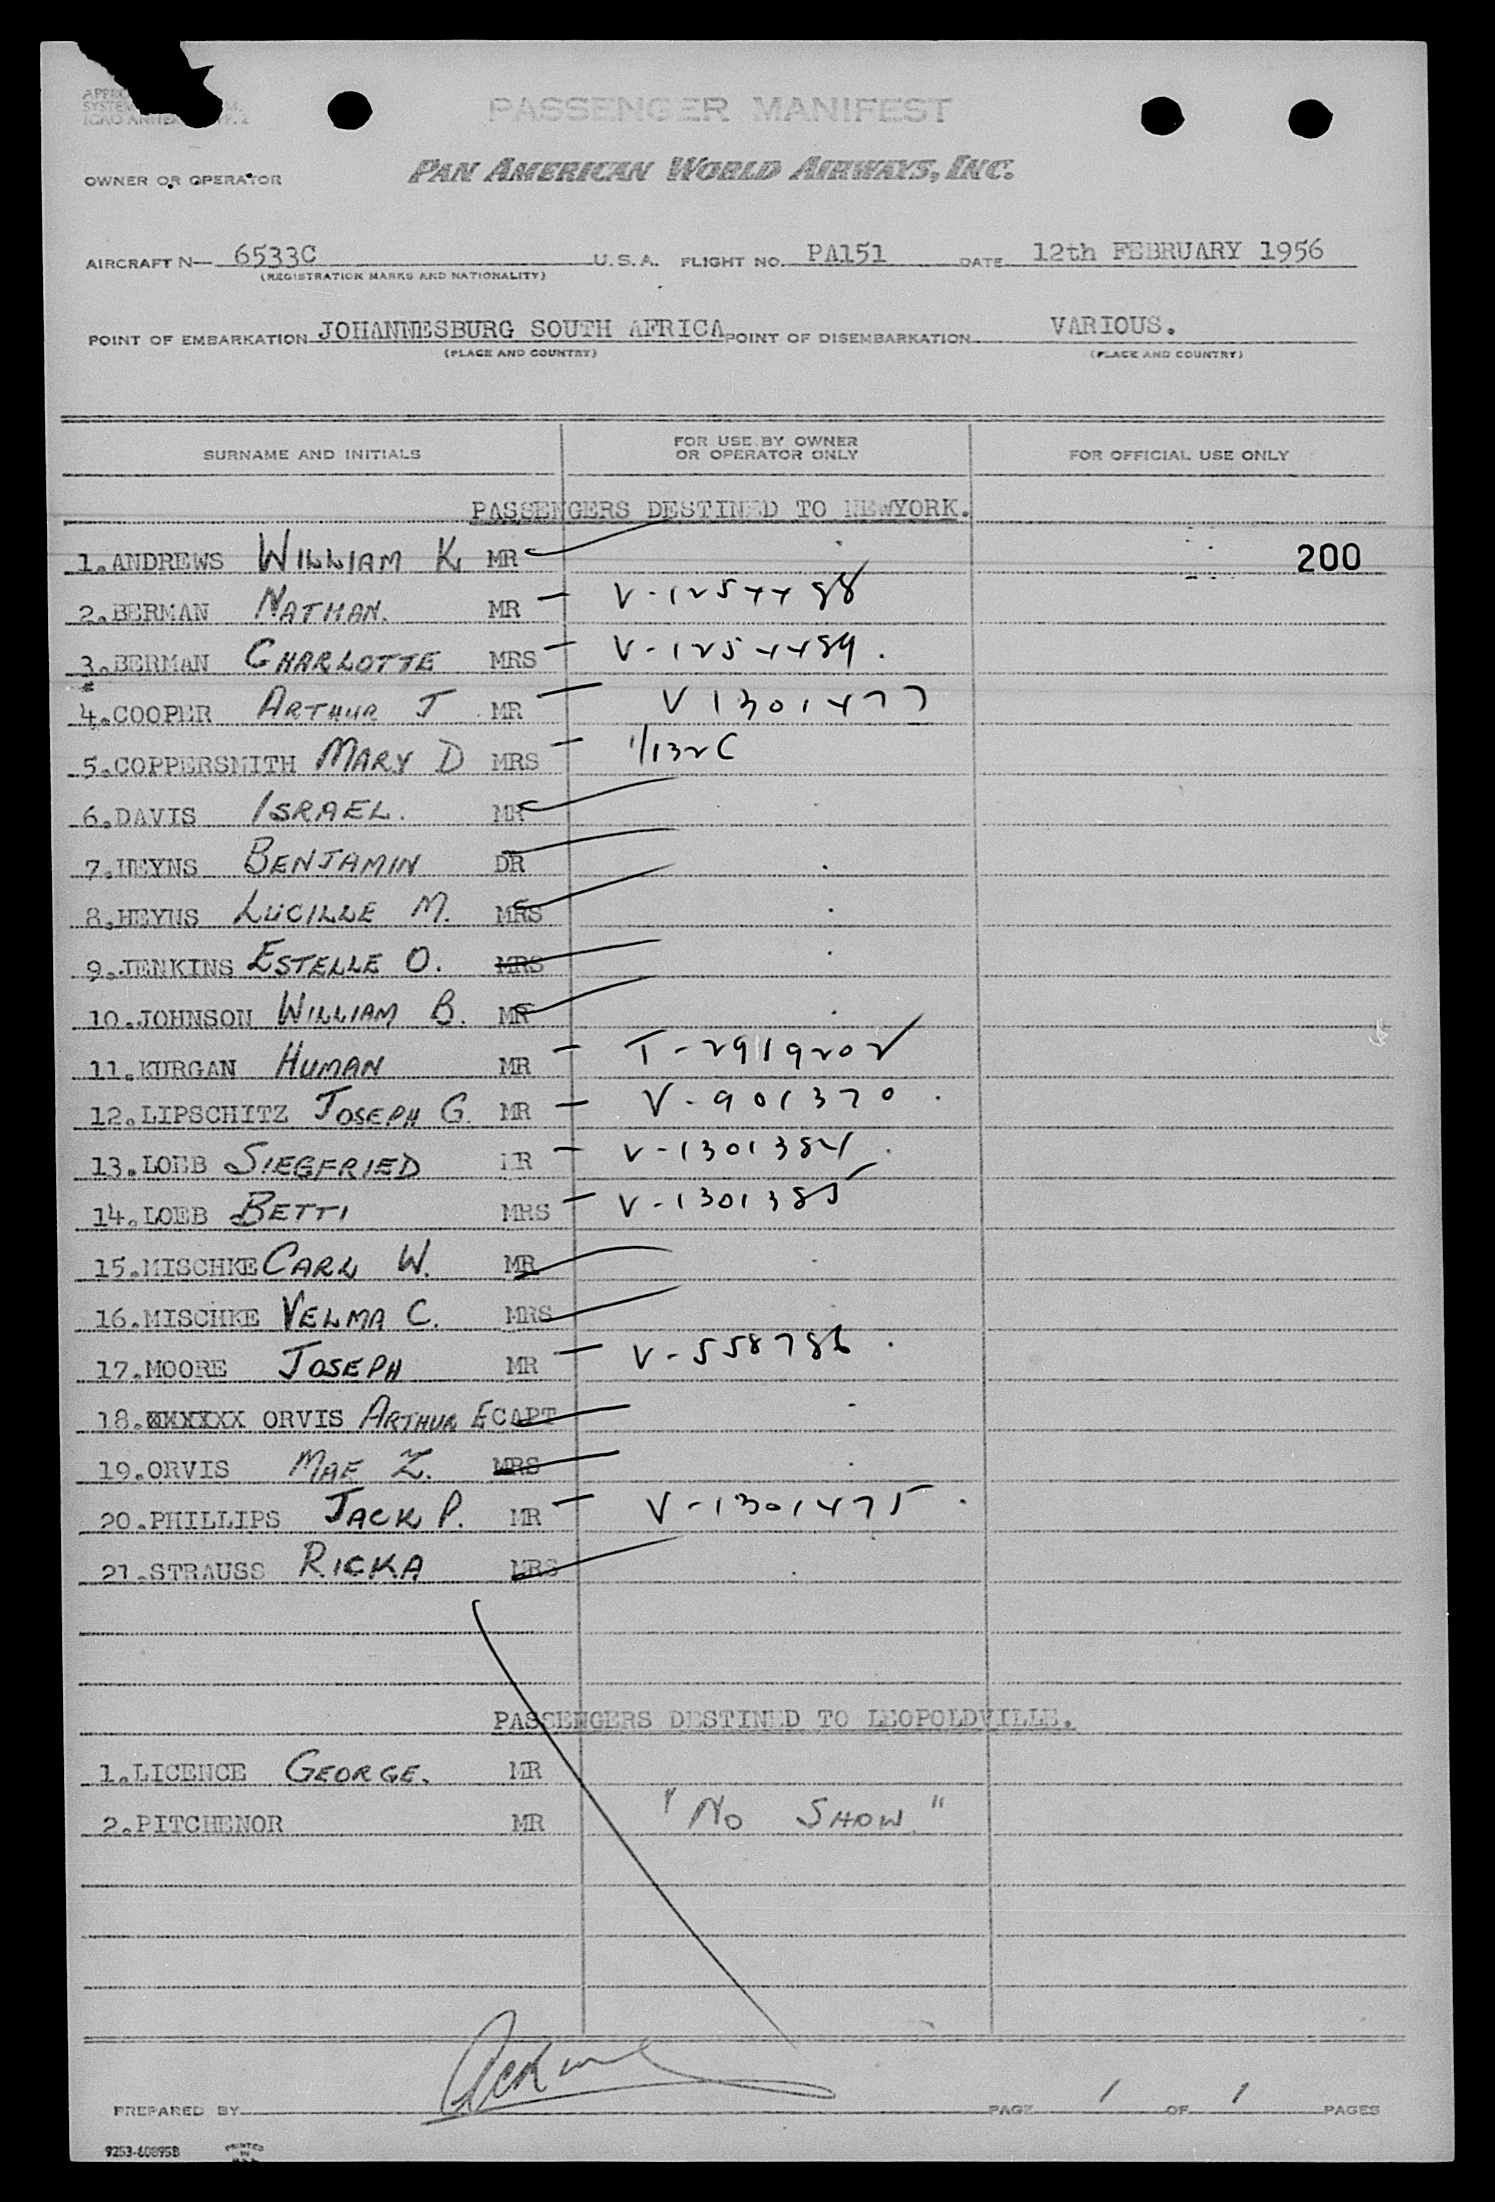 PASSENGER MANIFEST
OWNER OR OPERATOR PAN AMERICAN WORLD AIRWAYS, INC.
AIRCRAFT N— 6533C U.S.A. FLIGHT NO. PA151 DATE 12th FEBRUARY 1956
(REGISTRATION MARKS AND NATIONALITY)
POINT OF EMBARKATION JOHANNESBURG SOUTH AFRICA POINT OF DISEMBARKATION VARIOUS.
(PLACE AND COUNTRY) (PLACE AND COUNTRY)
SURNAME AND INITIALS FOR USE BY OWNER OR OPERATOR ONLY FOR OFFICIAL USE ONLY
PASSENGERS DESTINED TO NEWYORK.
1.ANDREWS WILLIAM K MR 200
2.BERMAN NATHAN. MR – V-1254488
3.BERMAN CHARLOTTE MRS – V-1254489.
4.COOPER ARTHUR J MR – V1301477
5.COPPERSMITH MARY D MRS –
6.DAVIS ISRAEL. MR
7.HEYNS BENJAMIN DR
8.HEYNS LUCILLE M. MRS
9.JENKINS ESTELLE O. MRS
10.JOHNSON WILLIAM B. MR
11.KURGAN HUMAN MR – T-2919202
12.LIPSCHITZ JOSEPH G. MR – V-901370.
13.LOEB SIEGFRIED MR – V-1301384.
14.LOEB BETTI MRS – V-1301385
15.MISCHKE CARL W. MR
16.MISCHKE VELMA C. MRS
17.MOORE JOSEPH MR – V-558786.
18. ORVIS ARTHUR E CAPT
19.ORVIS MAE Z. MRS
20.PHILLIPS JACK P. MR – V-1301475.
21.STRAUSS RICKA MRS
PASSENGERS DESTINED TO LEOPOLDVILLE.
1.LICENCE GEORGE. MR
2.PITCHENOR MR "NO SHOW"
PREPARED BY PAGE 1 OF 1 PAGES
9253-60895B PRINTED IN